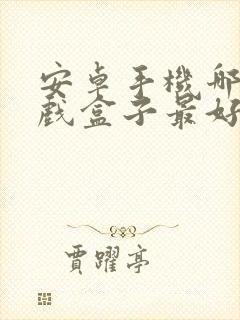 安卓手機哪
戲盒子最好
賈躍亭